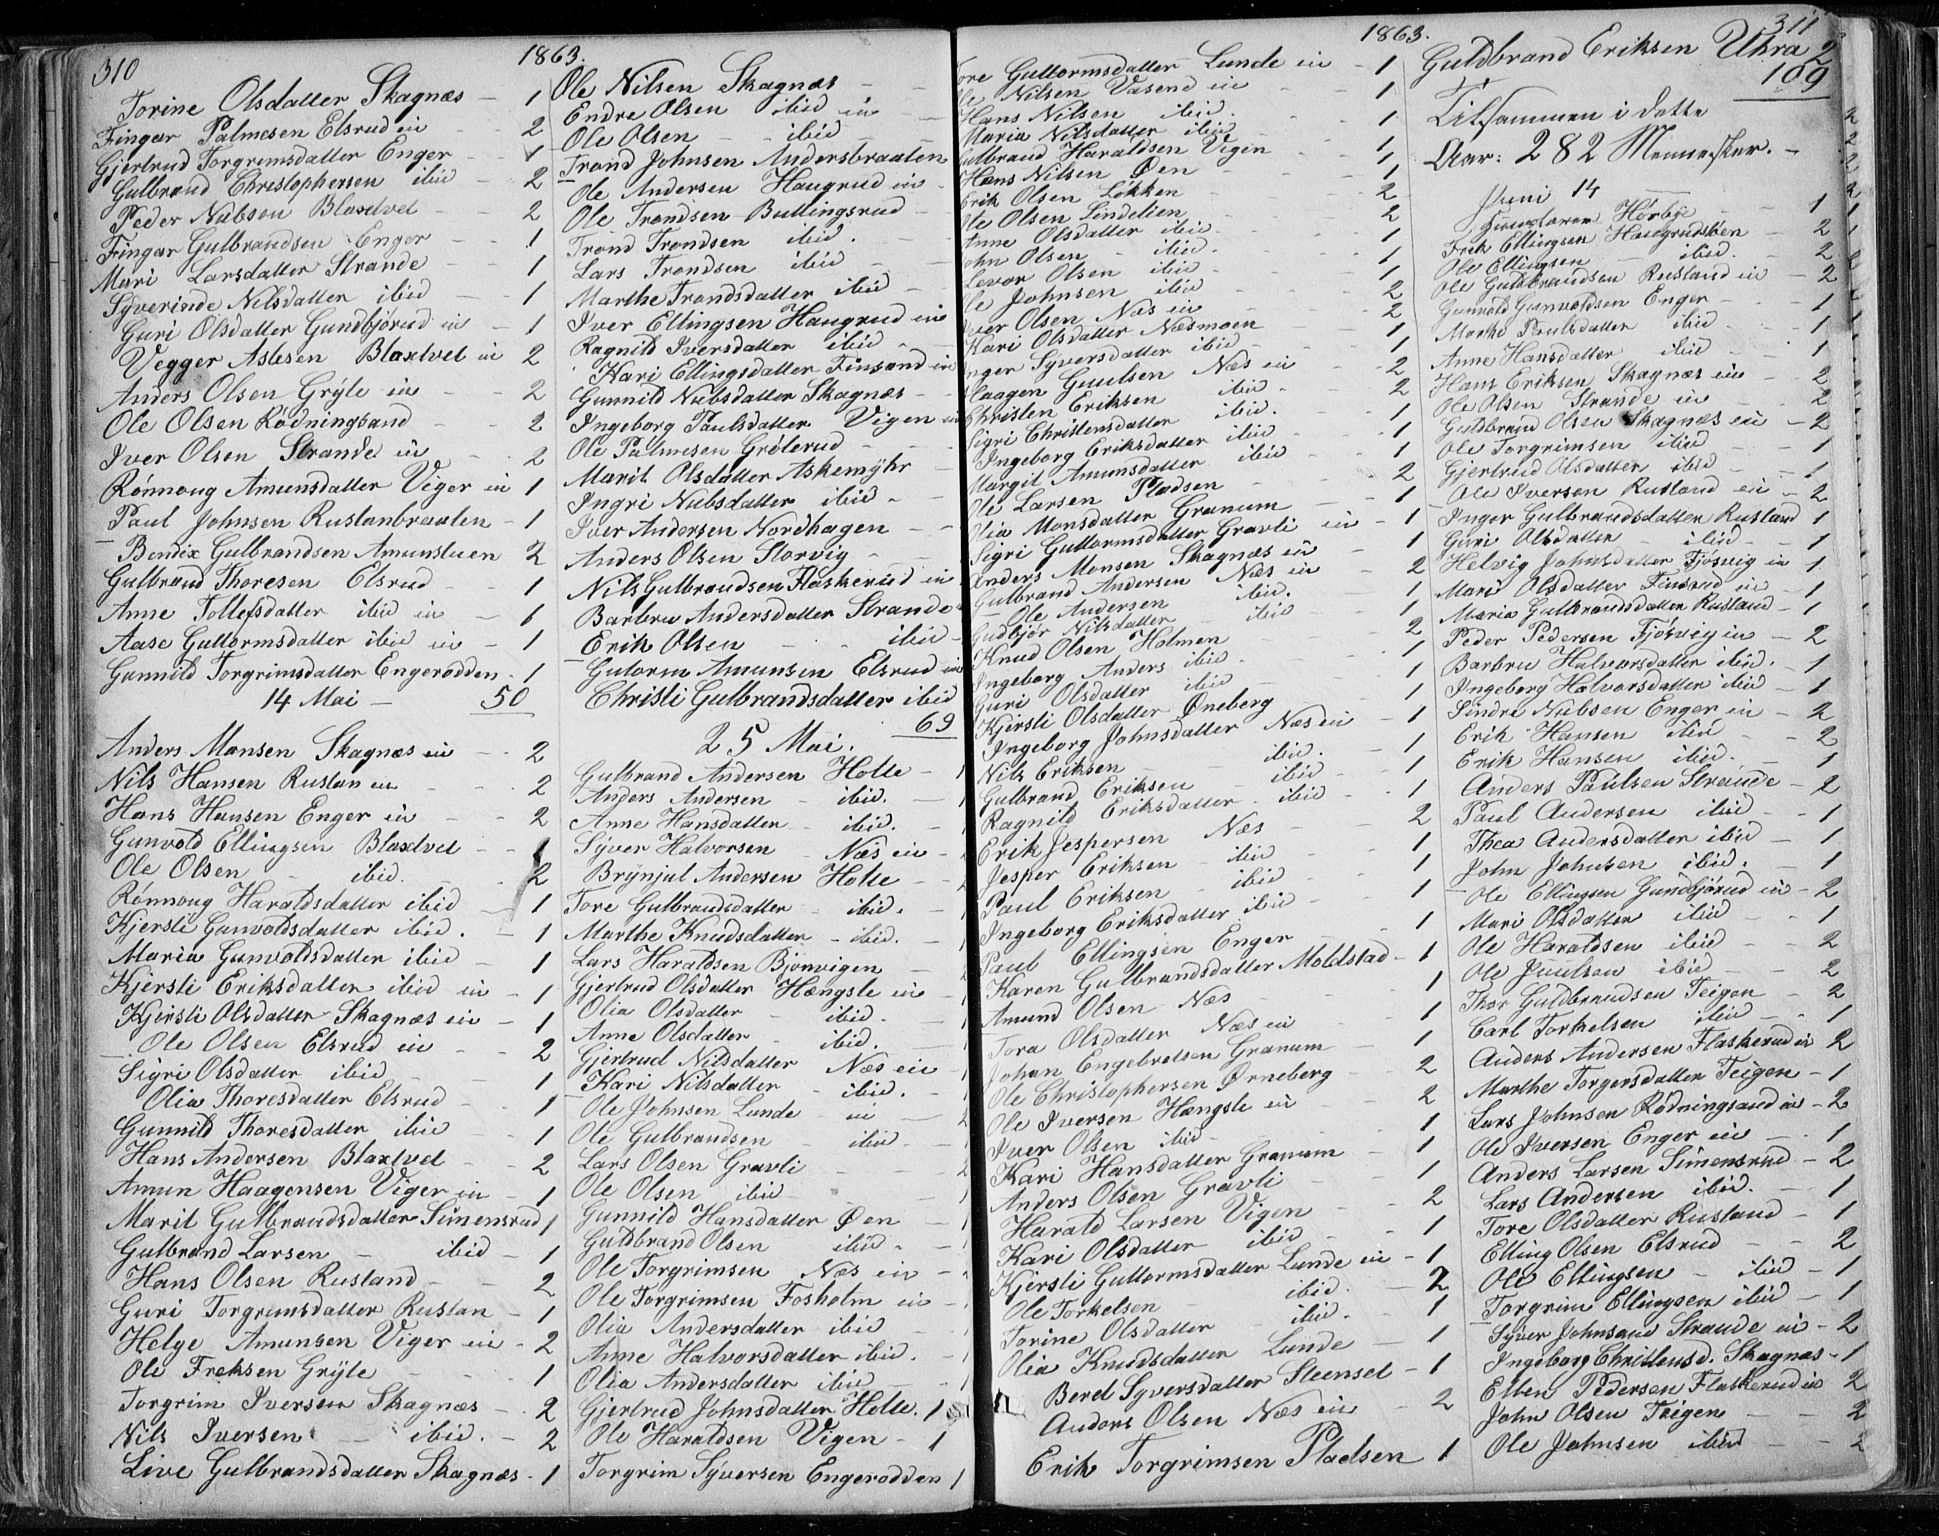 310
1863.
Torine Olsdatter Skagnæs - 1
Fingar Palmesen Elsrud en - 2
Gjertrud Torgrimsdatter Enger - 1
Gulbrand Christophersen ibid - 2
Peder Nubson Blaxtvet - 2
Fingar Gulbrandsen Enger - 1
Mari Larsdatter Strande - 1
Syverinde Nilsdatter ibid - 1
Guri Olsdatter Gundbjørud en - 1
Vegger Aslesen Blaxtvet en 2
Anders Olsen Gryte en - 2
Ole Olsen Rødningsand - 2
Iver Olsen Strande en - 2
Rønnoug Amunsdatter Viger en 1
Paul Johnsen Ruslanbraaten - 1
Bendix Gulbrandsen Amunstuen 2
Gulbrand Thoresen Elsrud - 1
Anne Tollefsdatter ibid en - 1
Aase Guttormsdatter ibid en - 1
Gunnild Torgrimsdatter Engerodden - 1
14 Mai - 50
Anders Monsen Skagnæs en - 2
Nils Hansen Ruslan en - 2
Hans Hansen Enger en - 2
Gunvold Ellingsen Blaxtvet - 1
Ole Olsen - ibid. - 2
Rønnoug Haraldsdatter ibid - 1
Kjersti Gunvoldsdatter ibid. - 1
Maria Gunvoldsdatter ibid - 1
Kjersti Eriksdatter ibid en - 1
Kjersti Olsdatter Skagnæs en - 1
Ole Olsen Elsrud en - 2
Sigri Olsdatter ibid - 1
Olia Thoresdatter Elsrud - 1
Gunnild Thoresdatter ibid - 1
Hans Andersen Blaxtvet - 2
Amun Haagensen Viger en - 1
Marit Gulbrandsdatter Simensrud 1
Gulbrand Larsen - ibid - 1
Hans Olsen Rusland - 2
Guri Torgrimsdatter Ruslan - 1
Helge Amunsen Viger en - 2
Ole Freksen Gryte - 1
Torgrim Iversen Skagnæs - 2
Nils Iversen - ibid. - 2
Live Gulbrandsdatter Skagnæs - 1
Ole Nilsen Skagnæs -
Endre Olsen ibid en -
Ole Olsen - ibid -
Trond Johnsen Andersbraaten
Ole Andersen Haugrud en -
Ole Trondsen Bullingsrud -
Trond Trondsen ibid. -
Lars Trondsen ibid -
Marthe Trondsdatter ibid -
Iver Ellingsen Haugrud en
Ragnild Iversdatter ibid -
Kari Ellingsdatter Finsand en
Gunnild Nubsdatter Skagnæs -
Ingeborg Paulsdatter Vigen en
Ole Palmesen Grøterud -
Marit Olsdatter Askemyhr -
Ingri Nubsdatter ibid -
Iver Andersen Nordhagen -
Anders Olsen Storvig -
Nils Gulbrandsen Flaskerud en
Barbru Andersdatter Strande
Erik Olsen - ibid -
Gutorm Amunsen Elsrud en
Christi Gulbrandsdatter ibid
69
25 Mai.
Gulbrand Andersen Holte - 1
Anders Andersen - ibid. -
Anne Hansdatter - ibid. -
Syver Halvorsen - Næs en -
Brynjul Andersen Holte -
Tore Gulbrandsdatter - ibid. -
Marthe Knudsdatter - ibid. -
Lars Haraldsen Bjonvigen -
Gjertrud Olsdatter Hængsle en -
Olia Olsdatter - ibid. -
Anne Olsdatter - ibid. -
Gjertrud Nilsdatter Næs en -
Kari Nilsdatter - ibid. -
Ole Johnsen Lunde - en -
Ole Gulbrandsen - ibid -
Lars Olsen Gravli -
Ole Olsen ibid -
Gunnild Hansdatter Øen -
Guldbrand Olsen ibid -
Ole Torgrimsen Næs en -
Ole Torgrimsen Fosholm en -
Olia Andersdatter ibid -
Anne Halvorsdatter ibid. -
Olia Andersdatter ibid -
Gjertrud Johnsdatter Holte. 1
Ole Haraldsen Vigen - 1
Torgrim Syversen Engerodden 1
1863.
311
Tore Guttormsdatter Lunde en - 1
Ole Nilsen Vasend en - 1
Hans Nilsen ibid. - 1
Maria Nilsdatter ibid - 1
Gulbrand Haraldsen Vigen - 1
Hans Nilsen Øen - 1
Erik Olsen Løkken - 2
Ole Olsen Lindelien - 2
Anne Olsdatter ibid - 1
John Olsen - ibid. - 1
Levor Olsen ibid - 1
Ole Johnsen ibid - 2
Iver Olsen Næs en - 2
Kari Olsdatter Næsmoen 1
Inger Syversdatter ibid - 1
Haagen Guulsen Næs en - 2
Christen Eriksen ibid - 2
Sigri Christensdatter ibid. - 1
Ingeborg Eriksdatter ibid - 1
Margit Amunsdatter ibid - 2
Ole Larsen Pladsen - 1
Olia Monsdatter Granum - 1
Sigri Guttormsdatter Gravli en - 1
Anders Monsen Skagnæs en - 2
Gulbrand Andersen Næs en - 1
Ole Andersen ibid. - 1
Gudbjør Nilsdatter - ibid 2
Knud Olsen Holmen - 1
Ingeborg Anders ibid. -
Guri Olsdatter ibid - 1
Kjersti Olsdatter Øneberg - 1
Ingeborg Johnsdatter Næs en - 1
Nils Eriksen - ibid. - 1
Gulbrand Eriksen - ibid - 1
Ragnild Eriksdatter - ibid - 2
Erik Jespersen Næs - 1
Jesper Eriksen - ibid - 1
Paul Eriksen - ibid - 1
Ingeborg Eriksdatter ibid - 1
Paul Ellingsen Enger - 1
Karen Gulbrandsdatter Moldstad - 1
Amund Olsen Næs - 1
Tora Olsdatter Næs en - 1
Johan Engebretsen Granum - 2
Ole Christophersen Ørneberg - 2
Ole Iversen Hængsle en - 1
Iver Olsen ibid - 1
Kari Hansdatter Granum - 1
Anders Olsen Gravli - 2
Harald Larsen Vigen - 1
Kari Olsdatter ibid - 1
Kjersti Guttormsdatter Lunde en - 1
Ole Torkelsen ibid. - 2
Torine Olsdatter - ibid. 1
Olia Knudsdatter Lunde - 1
Berel Syversdatter Steenset - 1
Anders Olsen Næs en - 2
Erik Torgrimsen Pladsen 1
Guldbrand Eriksen Ukra 2
169
Tilsammen i dette
Aar: 282 Mennesker. -
Juni 14
Hørbye - 1
Frek Ellingsen Haugrudsben - 2
Ole Ellingsen - ibid. 2
Ole Guldbrandsen Rusland en - 2
Gunvold Gunvoldsen Enger - 1
Marthe Paulsdatter ibid. - 1
Anne Hansdatter ibid - 1
Hans Eriksen Skagnæs en - 2
Ole Olsen Strande en - 2
Guldbrand Olsen Skagnæs en - 2
Ole Torgrimsen ibid - 1
Gjertrud Olsdatter ibid - 1
Ole Iversen Rusland en - 2
Inger Gulbrandsdatter Rusland 1
Guri Olsdatter - ibid - 1
Helvig Johnsdatter Fjøsvig en 1
Mari Olsdatter Finsrud en - 1
Maria Gulbrandsdatter Rusland - 1
Peder Pedersen Fjøsvig en - 2
Barbru Halvorsdatter ibid. - 1
Ingeborg Halvorsdatter ibid - 1
Sindre Nubsen Enger en - 2
Erik Hansen ibid - 2
Erik Hansen ibid. - 1
Anders Paulsen Strande - 2
Paul Andersen ibid - 1
Thea Andersdatter ibid - 1
John Johnsen ibid. - 1
Ole Ellingsen Gundbjørud en - 2
Mari Olsdatter ibid - 1
Ole Haraldsen ibid - 2
Ole Juulsen ibid - 2
Thor Guldbrandsen Teigen - 2
Carl Torkelsen ibid - 1
Anders Andersen Flaskerud en 2
Marthe Torgersdatter Teigen - 1
Lars Johnsen Rødningsand en - 2
Ole Iversen Enger en - 1
Anders Larsen Simensrud - 2
Lars Andersen ibid. - 1
Tore Olsdatter Rusland - 1
Elling Olsen Elsrud - 2
Ole Ellingsen - ibid - 1
Torgrim Ellingsen ibid - 1
Syver Johnsen Strande en - 2
Ingeborg Christensd. Skagnæs - 1
Elben Pedersen Flaskerud en 2
John Olsen Teigen - 2
Ole Johnsen ibid - 2